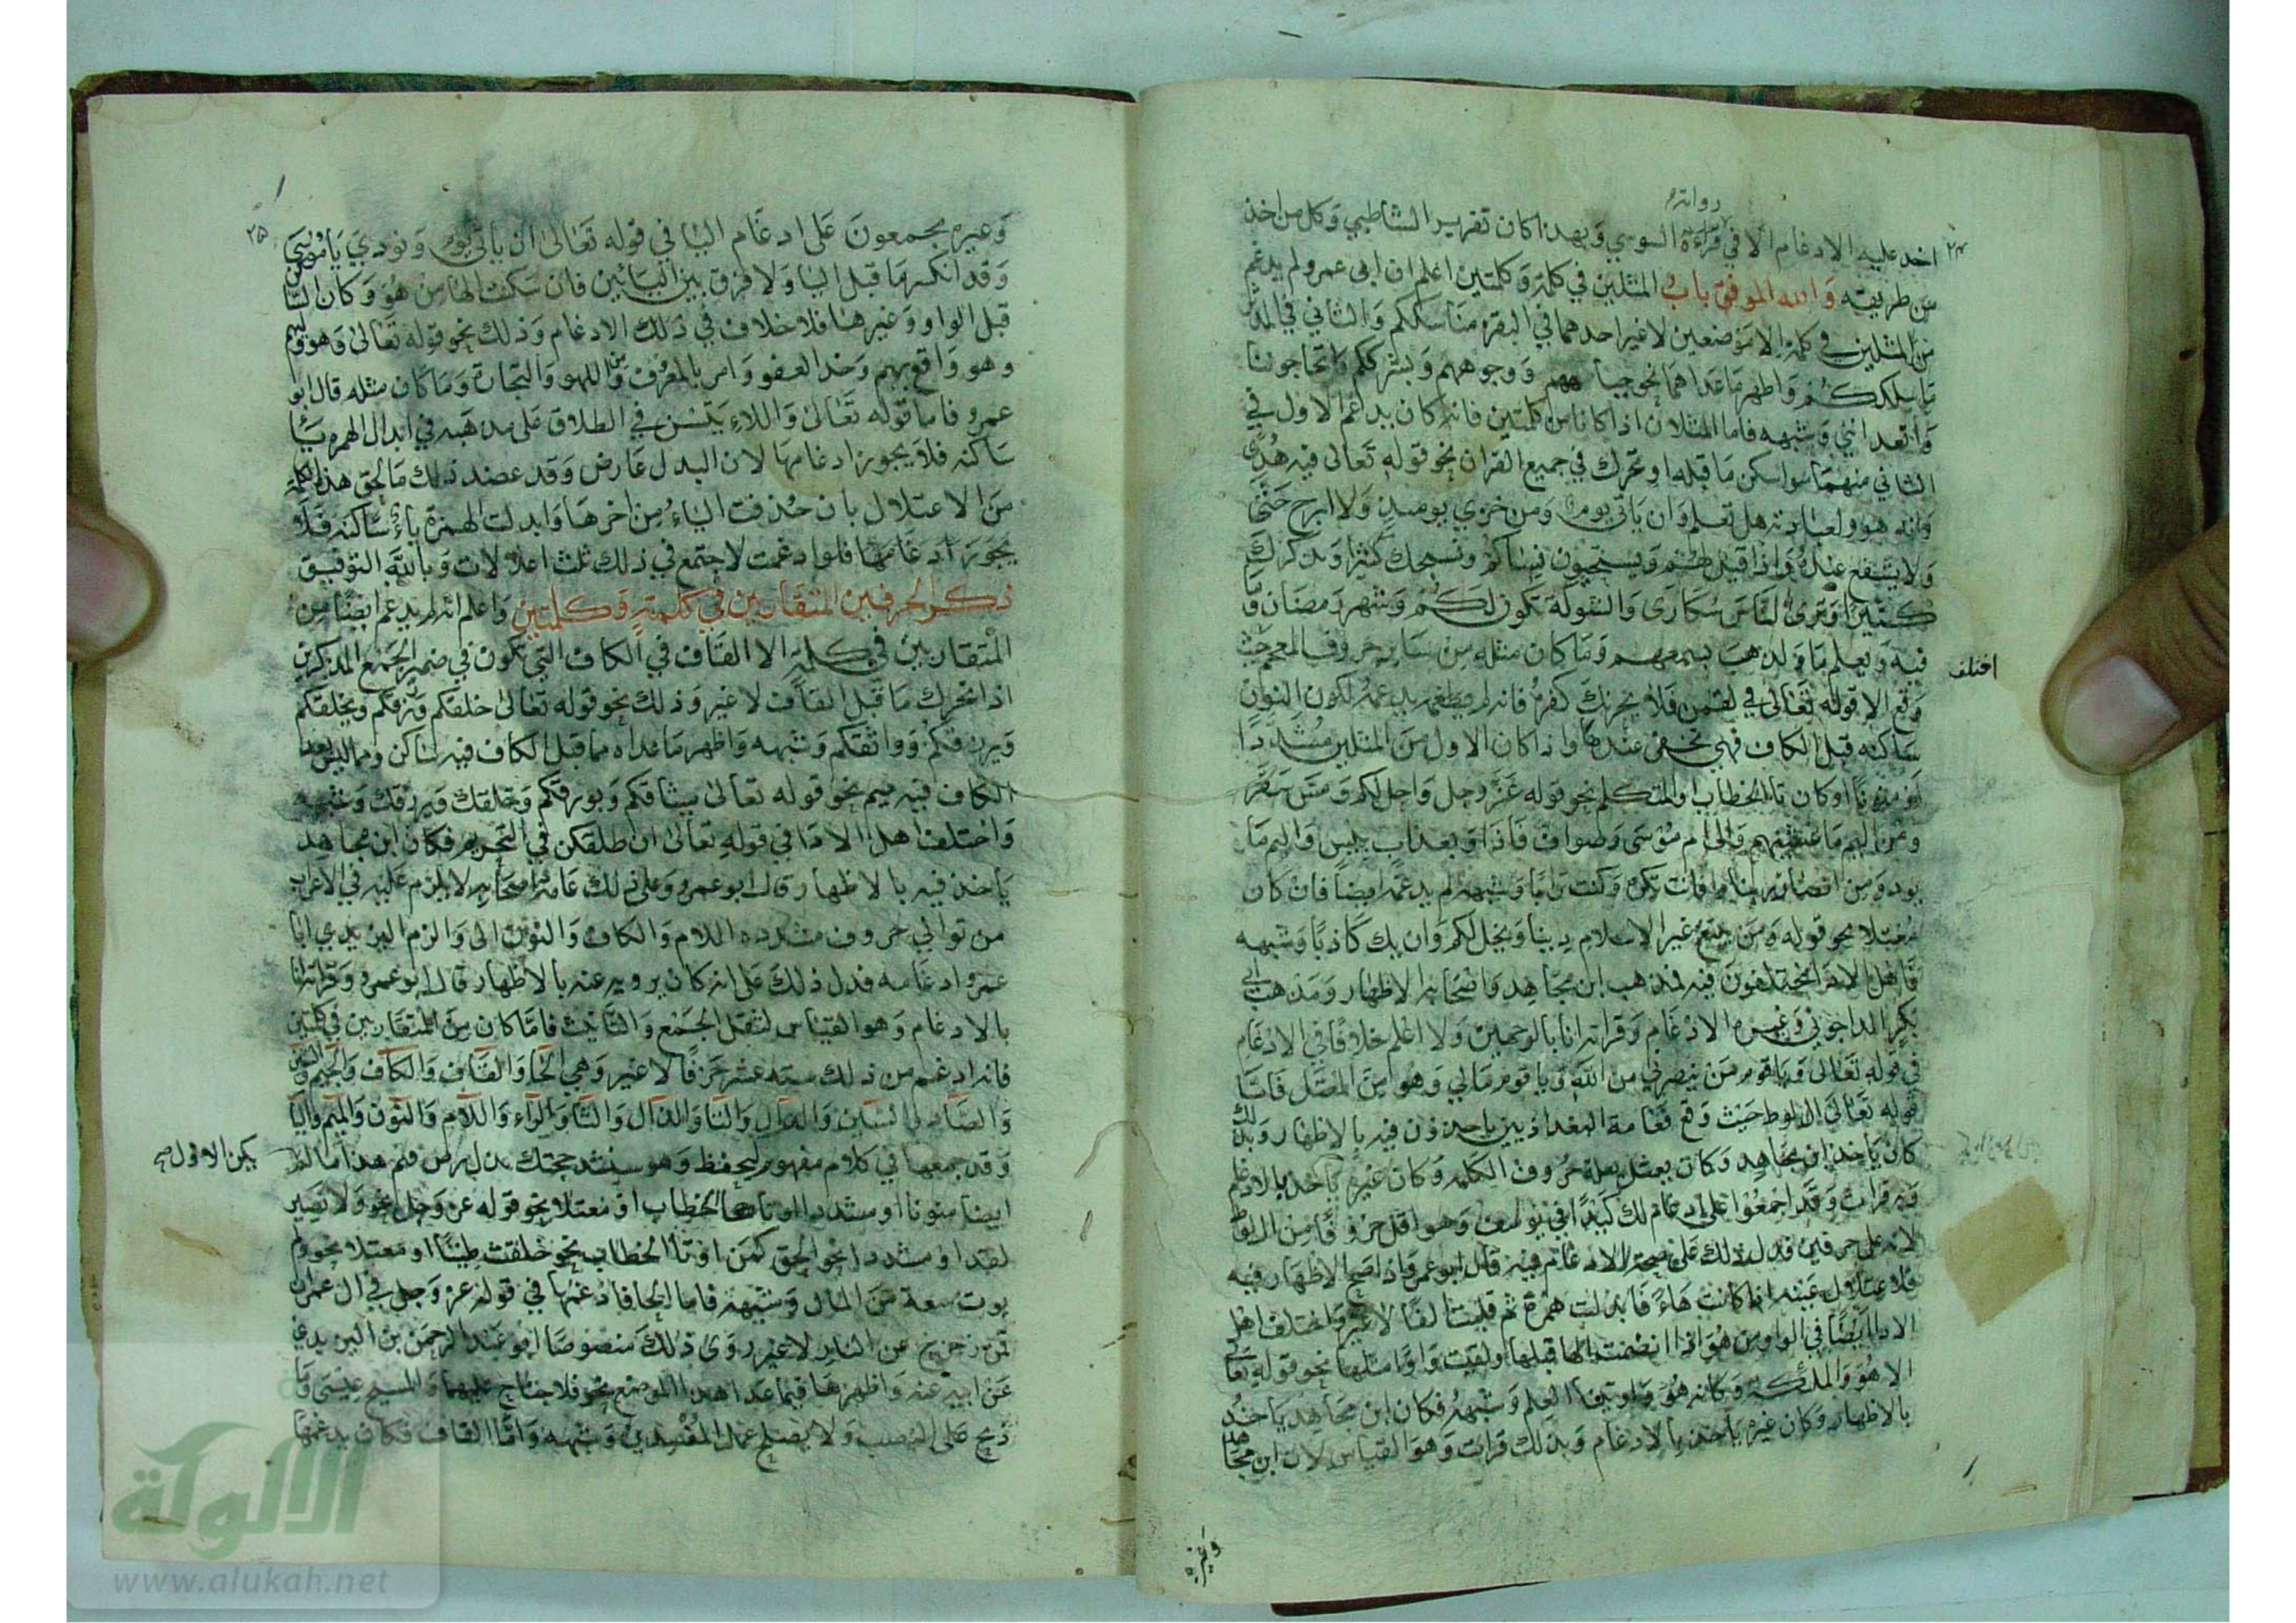 رواية
٢٤
اخذ عليه الادغام الا في قراءة السوسي وبهذا كان تقرير الشاطبي وكل من اخذ
من طريقته والله الموفق باب المثلين في كلمة وكلمتين اعلم ان ابى عمرو لم يدغم
من المثلين في كلمة الا موضعين لاغير احدهما في البقره مناسككم والثاني في المدثر
ما سلككم واظهر ماعداهما نحو جباههم ووجوههم وبشرككم واتحاجوننا
واتعدانني وشبهه فاما المثلان اذا كانا من كلمتين فانه كان يدغم الاول في
الثاني منهما سوا سكن ما قبله او تحرك في جميع القران نحو قوله تعالى فيه هدى
وانه هو ولعبادته هل تعلم وان ياتي يوم ومن خزي يومئذ ولا ابرح حتى
ولا يشفع عنده واذا قيل لهم ويستحيون نساكم ونسبحك كثيرا ونذكرك
كثيرا وترى الناس سكارى والشوكة تكون لكم وشهر رمضان وما
فيه ويعلم ما ولذهب بسمعهم وما كان مثله من ساير حروف المعجم حيث
اختلف
وقع الا قوله تعالى في لقمن فلا يحزنك كفره فانه لم يدغمه لكون النون
ساكنه قبل الكاف فهي تخفى عندها واذا كان الاول من المثلين مشددا
او منونا او كان تا الخطاب او المتكلم نحو قوله عز وجل واحل لكم ومس سقر
ومن اليم ما غشيهم والى ام موسى وصواف فاذا وبعذاب بئيس واليم ما
من انصار ربنا وافانت تكره وكنت ترابا وشبهه لم يدغمه ايضا فان كان
معتلا نحو قوله ومن يبتغ غير الاسلام دينا ويخل لكم وان يك كاذبا وشبهه
فاهل الادا مختلفون فيه فمذهب ابن مجاهد واصحابه الاظهار ومذهب ابي
بكر الداجوني وغيره الادغام وقراته انا بالوجهين ولا اعلم خلافا في الادغام
في قوله تعالى ويا قوم من ينصرني من الله ويا قوم مالي وهو من المعتل فاما
قوله تعالى ال لوط حيث وقع فعامة البغداذيين ياخذون فيه بالاظهار وبذلك
كان ياخذ ابن مجاهد وكان يعتل بقلة حروف الكلمه وكان غيره ياخذ بالادغام
وبه قرات وقد اجمعوا على ادغام لك كيدا في يوسف وهو اقل حروفا من ال لوط
لانه على حرفين فدل ذلك على صحة الادغام فيه قال ابو عمرو واذا صح الاظهار فيه
فلاعتلال عينه اذا كانت هاء فابدلت همزة ثم قلبت الفا لا غير واختلف اهل
الادا ايضا في الواو من هو اذا انضمت الها قبلها ولقيت واوا مثلها نحو قوله تعالى
الا هو والملئكة وكانه هو واوتينا العلم وشبهه فكان ابن مجاهد ياخذ
بالاظهار وكان غيره ياخذ بالادغام وبذلك قرات وهو القياس لان ابن مجاهد
وغيره
٢٥
وغيره مجمعون على ادغام اليا في قوله تعالى ان ياتي يوم ونودي يا موسى
وقد انكسر ما قبل اليا ولا فرق بين اليائين فان سكنت الها من هو وكان الساكن
قبل الواو وغيرها فلا خلاف في ذلك الادغام وذلك نحو قوله تعالى وهو وليهم
وهو واقع بهم وخذ العفو وامر بالمعروف ومن اللهو والتجارة وما كان مثله قال ابو
عمرو فاما قوله تعالى واللاء يئسن في الطلاق على مذهبه في ابدال الهمزه ياء
ساكنه فلا يجوز ادغامها لان البدل عارض وقد عضد ذلك ما لحق هذه الكلمة
من الاعتلال بان حذفت الياء من اخرها وابدلت الهمزة ياء ساكنه فلا
يجوز ادغامها فلو ادغمت لاجتمع في ذلك ثلث اعلالات وبالله التوفيق
ذكر الحرفين المتقاربين في كلمة وكلمتين واعلم انه لم يدغم ايضا من
المتقاربين في كلمة الا القاف في الكاف التي تكون في ضمير الجمع المذكرين
اذا تحرك ما قبل القاف لا غير وذلك نحو قوله تعالى خلقكم ورزقكم ويخلقكم
ويرزقكم وواثقكم وشبهه واظهر ما عداه مما قبل الكاف فيه ساكن ومما ليس بعد
الكاف فيه ميم نحو قوله تعالى ميثاقكم وبورقكم وخلقك ويرزقك وشبهه
واختلف اهل الادا في قوله تعالى ان طلقكن في التحريم فكان ابن مجاهد
ياخذ فيه بالاظهار قال ابو عمرو وعلى ذلك عامة اصحابه لا يلزم عليه في الاعراب
من توالي حروف مشدده اللام والكاف والنون الى والزم اليزيدي ابا
عمرو ادغامه فدل ذلك على انه كان يرويه عنه بالاظهار قال ابو عمرو وقراته انا
بالادغام وهو القياس لثقل الجمع والتانيث فاما كان من المتقاربين في كلمتين
فانه ادغم من ذلك سته عشر حرفا لا غير وهي الحا والقاف والكاف والجيم والشين
والضاد والسين والدال والتا والذال والثا والراء واللام والنون والميم والبا
وقد جمعها في كلام مفهوم ليحفظ وهو سنشد حجتك بذل رض قثم هذا ما لم
يكن الاول صح
ايضا منونا او مشددا او تا الخطاب او معتلا نحو قوله عز وجل نحو ولا نصير
لقد او مشددا نحو الحق كمن او تا الخطاب نحو خلقت طينا او معتلا نحو ولم
يوت سعة من المال وشبهه فاما الحا فادغمها في قوله عز وجل في ال عمران
فمن زحزح عن النار لا غير روى ذلك منصوصا ابو عبد الرحمن بن اليزيدي
عن ابيه عنه واظهرها فيما عدا هذا الموضع نحو فلا جناح عليهما والمسيح عيسى وما
ذبح على النصب ولا يصلح عمل المفسدين وشبهه واما القاف فكان يدغمها
الألوكة
www.alukah.net